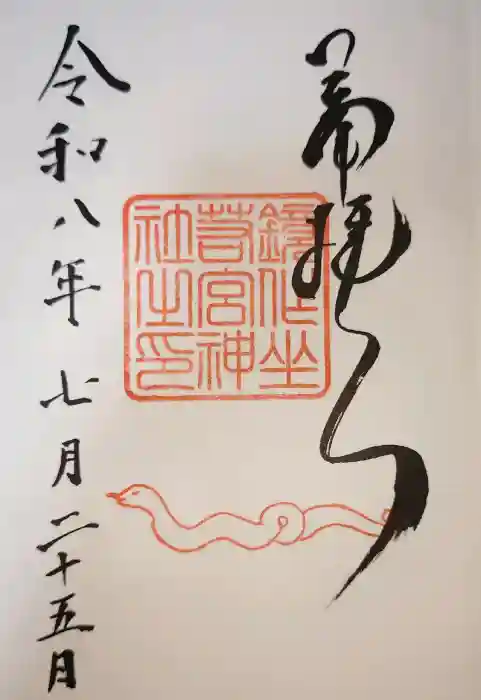 奉拝
鏡作坐
若宮神
社之印
令和八年七月二十五日